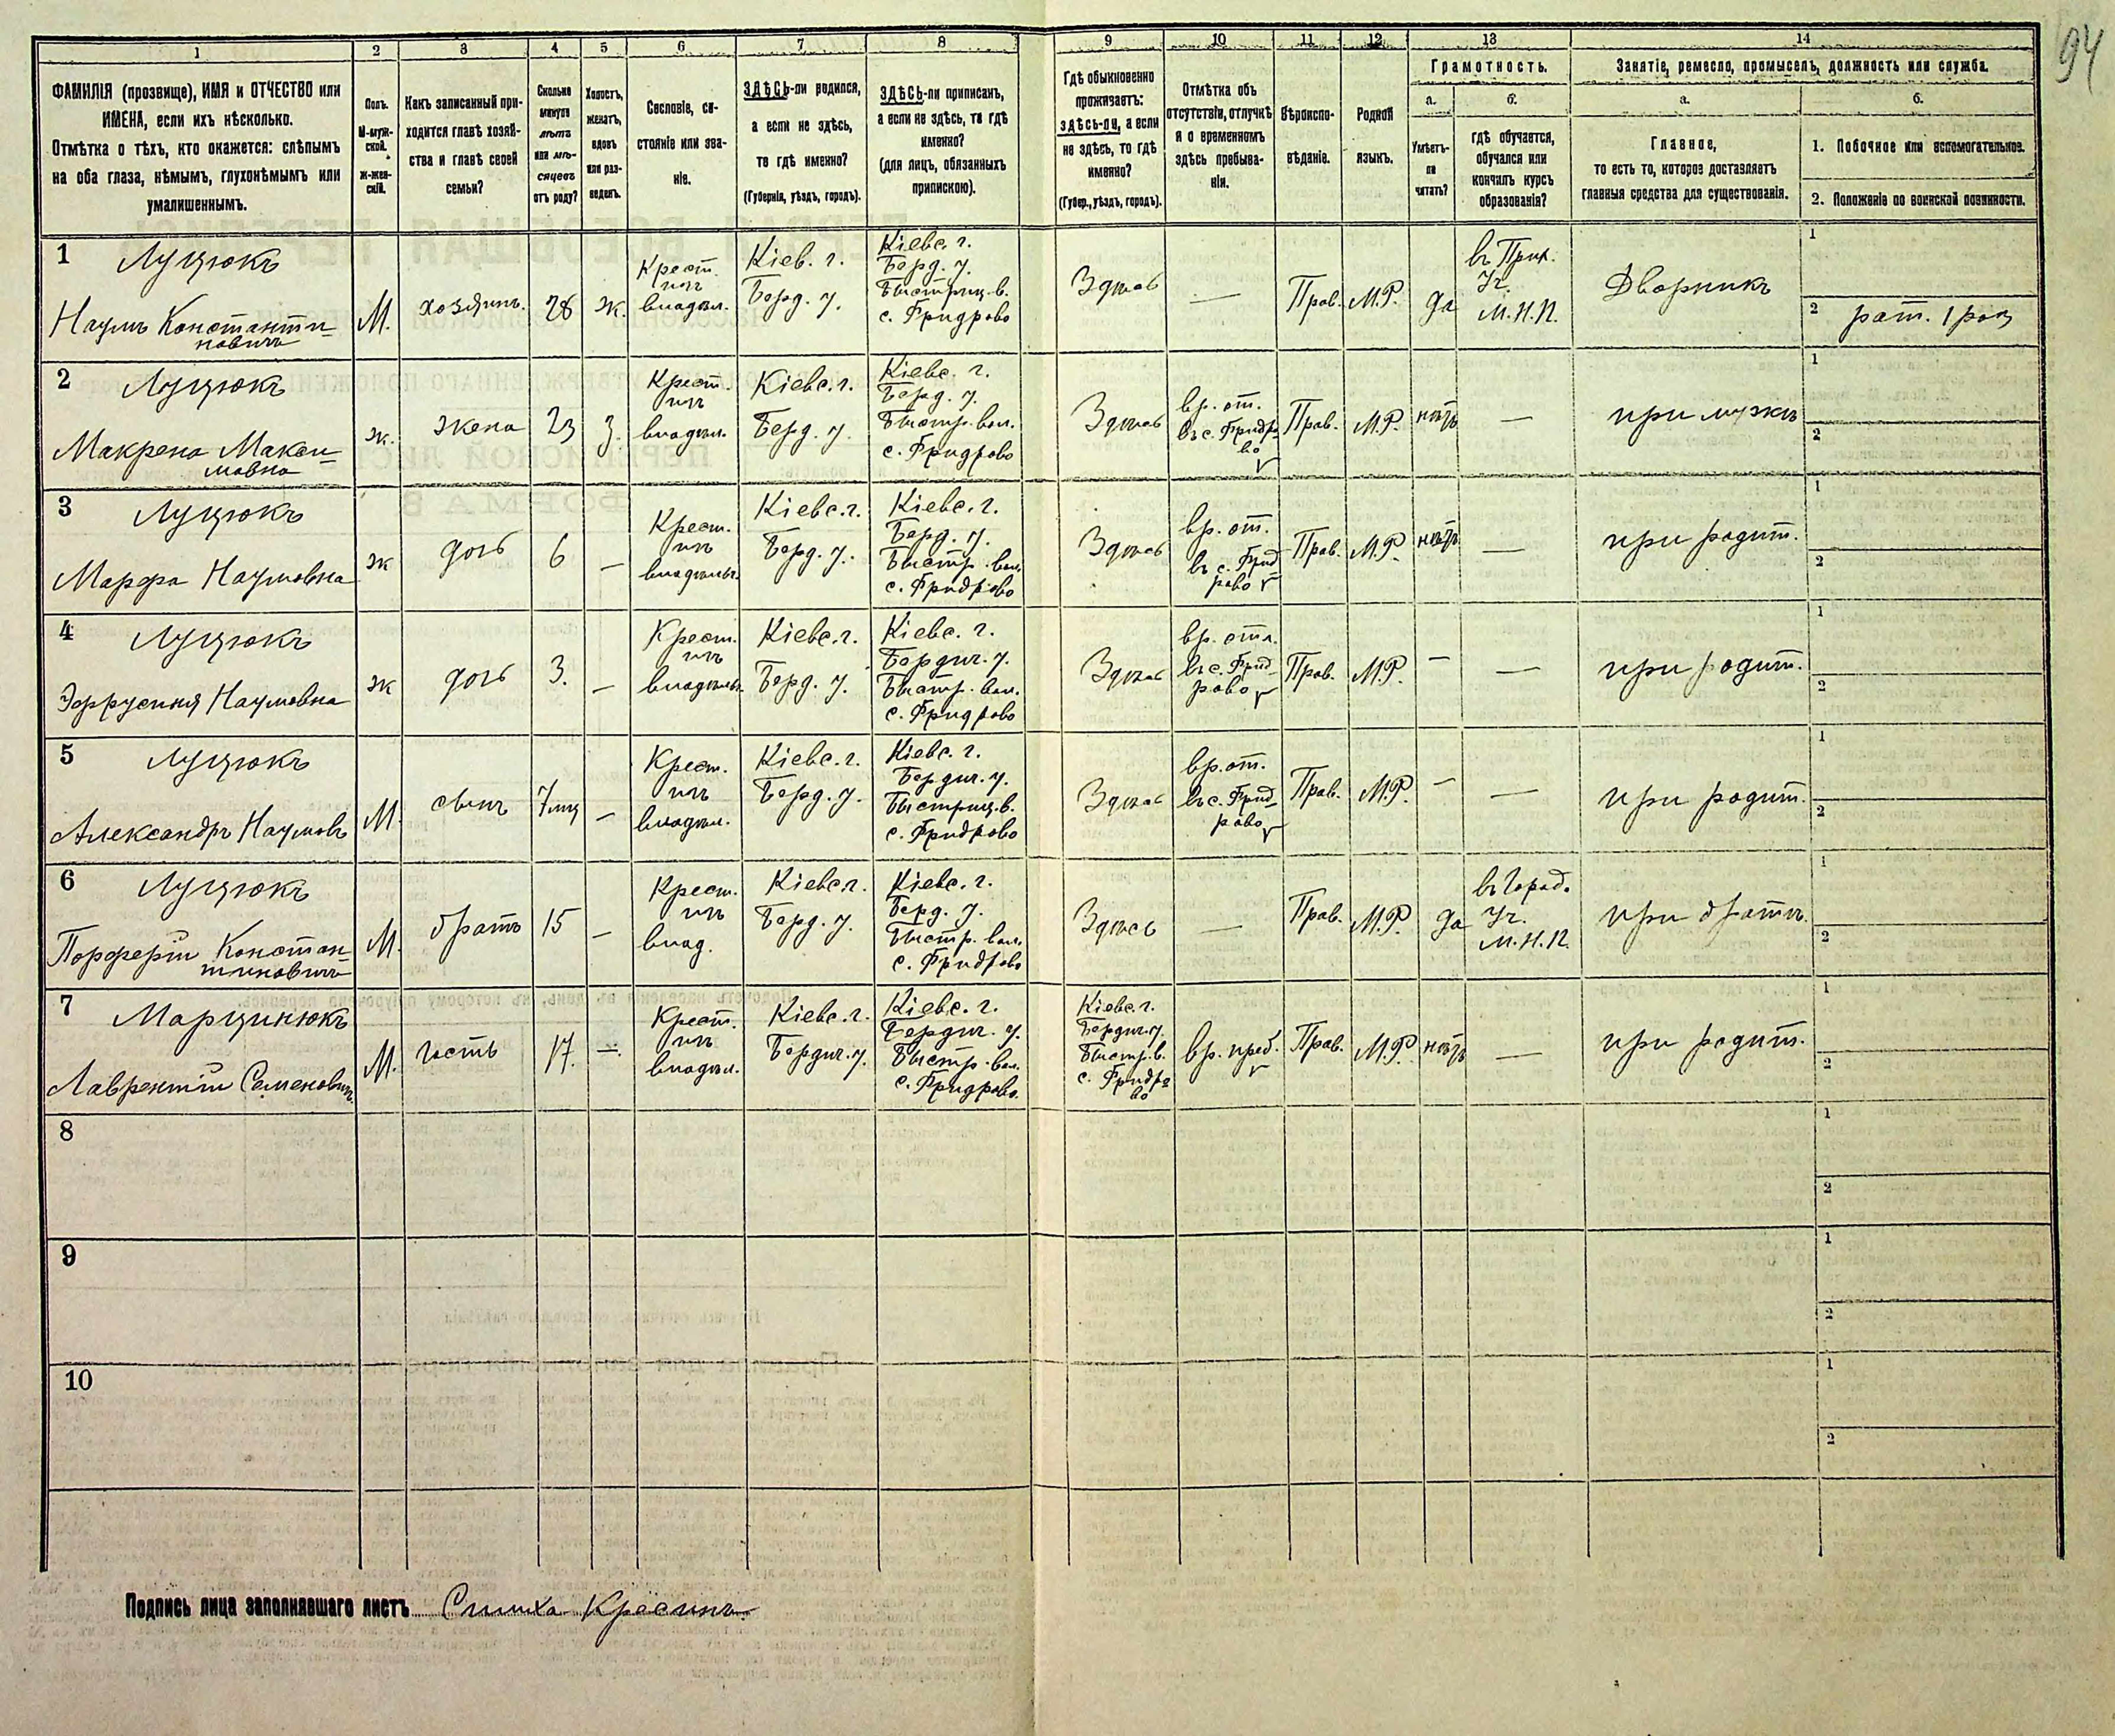 94
1 2 3 4 5 6 7 8 9 10 11 12 13 14
ФАМИЛІЯ (прозвище), ИМЯ и ОТЧЕСТВО или
ИМЕНА, если ихъ нѣсколько.
Отмѣтка о тѣхъ, кто окажется: слѣпымъ
на оба глаза, нѣмымъ, глухонѣмымъ или
умалишеннымъ.
Полъ.
М-муж-
ской.
Ж-жен-
скій.
Какъ записанный при-
ходится главѣ хозяй-
ства и главѣ своей
семьи?
Сколько
минуло
лѣтъ
или мѣ-
сяцевъ
отъ роду?
Холостъ,
женатъ,
вдовъ
или раз-
веденъ.
Сословіе, со-
стояніе или зва-
ніе.
ЗДѢСЬ-ли родился,
а если не здѣсь,
то гдѣ именно?
(Губернія, уѣздъ, городъ).
ЗДѢСЬ-ли приписанъ,
а если не здѣсь, то гдѣ
именно?
(для лицъ, обязанныхъ
припискою).
Гдѣ обыкновенно
проживаетъ:
здѣсь-ли, а если
не здѣсь, то гдѣ
именно?
(Губер., уѣздъ, городъ).
Отмѣтка объ
отсутствіи, отлучкѣ
и о временномъ
здѣсь пребыва-
ніи.
Вѣроиспо-
вѣданіе.
Родной
языкъ.
Грамотность.
а.
Умѣетъ-
ли
читать?
б.
гдѣ обучается,
обучался или
кончилъ курсъ
образованія?
Занятіе, ремесло, промыселъ, должность или служба.
а.
Главное,
то есть то, которое доставляетъ
главныя средства для существованія.
б.
1. Побочное или вспомогательное.
2. Положеніе по воинской повинности.
1 Луцюкъ
Наумъ Константи-
новичъ
М.
хозяинъ.
28
ж.
Крест.
изъ
владѣл.
Кіев. г.
Берд. у.
Кіевс. г.
Берд. у.
Быстриц. в.
с. Фридрово
Здѣсь
—
Прав.
М.Р.
да
въ Прих.
Уч.
М.Н.П.
Дворникъ
1
2 рат. 1 раз
2 Луцюкъ
Макрена Макси-
мовна
ж.
жена
23
з.
Крест.
изъ
владѣл.
Кіевс. г.
Берд. у.
Кіевс. г.
Берд. у.
Быстр. вол.
с. Фридрово
Здѣсь
вр. от.
въ с. Фридро
во
Прав.
М.Р.
нѣтъ
—
при мужѣ
1
2
3 Луцюкъ
Марфа Наумовна
ж
дочь
6
—
Крест.
изъ
владѣльч.
Кіевс. г.
Берд. у.
Кіевс. г.
Берд. у.
Быстр. вол.
с. Фридрово
Здѣсь
вр. от.
въ с. Фрид
рово
Прав.
М.Р.
нѣтъ
—
при родит.
1
2
4 Луцюкъ
Эффусиня Наумовна
ж
дочь
3.
—
Крест.
изъ
владѣльч
Кіевс. г.
Берд. у.
Кіевс. г.
Бердич. у.
Быстр. вол.
с. Фридрово
Здѣсь
вр. отл.
въ с. Фрид-
рово
Прав.
М.Р.
—
—
при родит.
1
2
5 Луцюкъ
Александръ Наумовъ
М.
сынъ
7 мц
—
Крест.
изъ
владѣл.
Кіевс. г.
Берд. у.
Кіевс. г.
Бердич. у.
Быстриц. в.
с. Фридрово
Здѣсь
вр. от.
въ с. Фрид-
рово
Прав.
М.Р.
—
—
при родит.
1
2
6 Луцюкъ
Порферій Констан-
тиновичъ
М.
братъ
15
—
Крест.
изъ
влад.
Кіевс. г.
Берд. у.
Кіевс. г.
Берд. у.
Быстр. вол.
с. Фридрово
Здѣсь
—
Прав.
М.Р.
да
въ Город.
Уч.
М.Н.П.
при братѣ.
1
2
7 Марцинюкъ
Лаврентій Семеновичъ
М.
гость
17.
—
Крест.
изъ
владѣл.
Кіевс. г.
Бердич. у.
Кіевс. г.
Бердич. у.
Быстр. вол.
с. Фридрово.
Кіевс. г.
Бердич. у.
Быстр. в.
с. Фридро
во
вр. преб.
Прав.
М.Р.
нѣтъ
—
при родит.
1
2
8
1
2
9
1
2
10
1
2
Подпись лица заполнявшаго листъ Симха Красинъ.